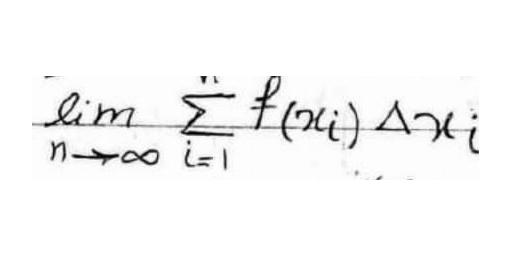 lim n→∞ n∑i=1 f(xi) Δxi